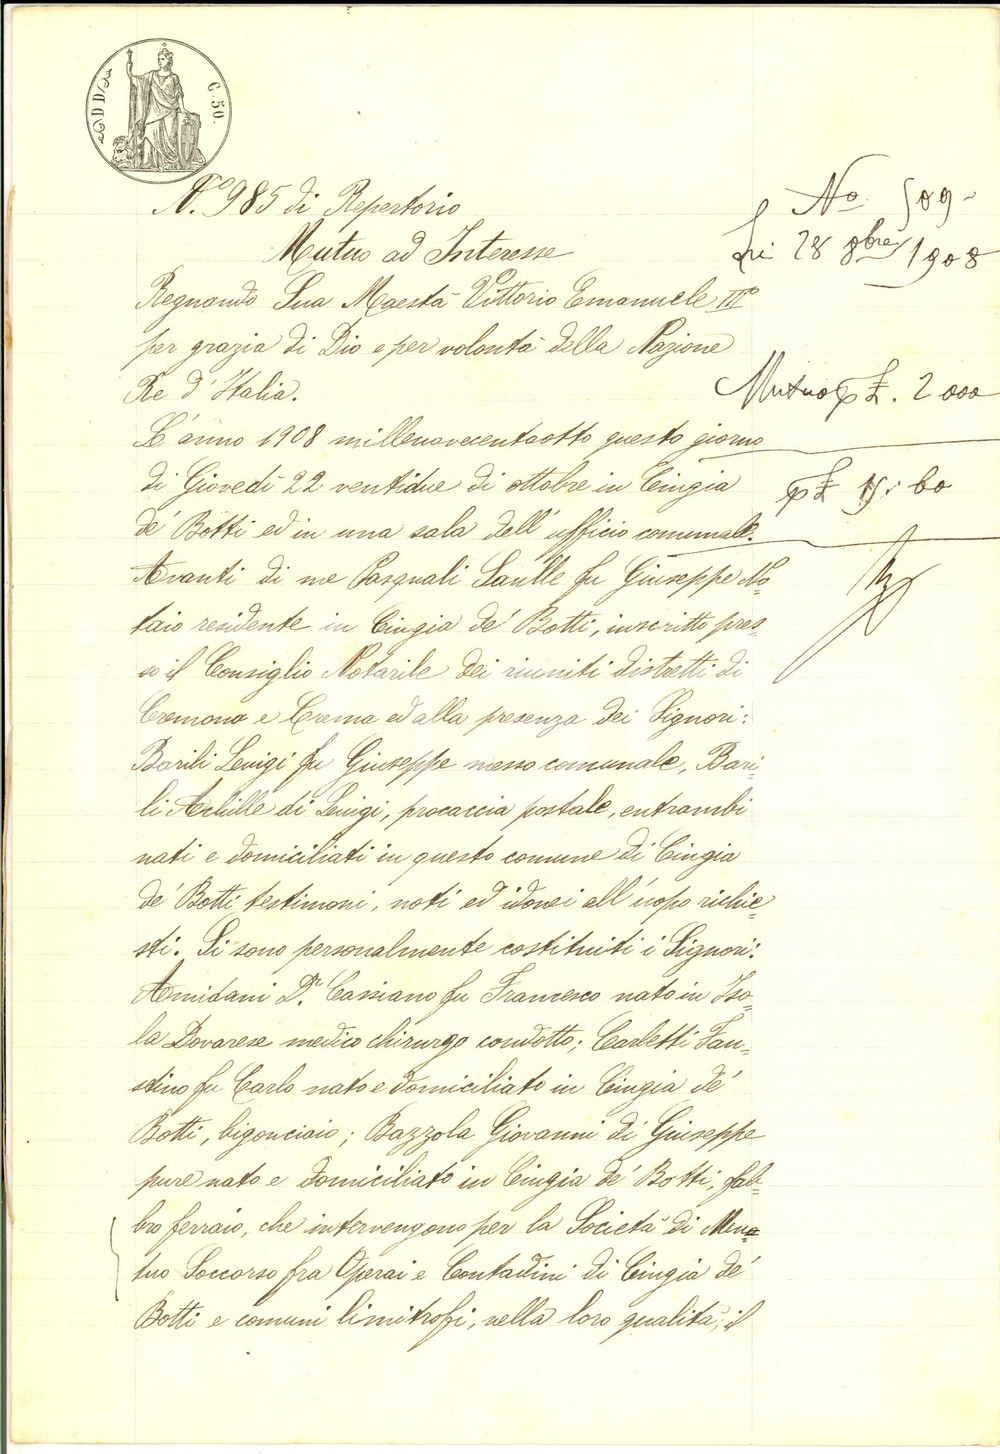 C. 50.
N.° 985 di Repertorio
Mutuo ad Interesse
Regnando Sua Maestà Vittorio Emanuele III°
per grazia di Dio e per volontà della Nazione
Re d'Italia.
L'anno 1908 millenovecentootto questo giorno
di Giovedì 22 ventidue di ottobre in Cingia
de' Botti ed in una sala dell'ufficio comunale.
Avanti di me Pasquali Saulle fu Giuseppe No-
taio residente in Cingia de' Botti, inscritto pres-
so il Consiglio Notarile dei riuniti distretti di
Cremona e Crema ed alla presenza dei Signori:
Barili Luigi fu Giuseppe messo comunale, Bari-
li Achille di Luigi, procaccia postale, entrambi
nati e domiciliati in questo comune di Cingia
de' Botti testimoni, noti ed idonei all'uopo richie-
sti. Si sono personalmente costituiti i Signori:
Amidani D.r Cassiano fu Francesco nato in Iso-
la Dovarese medico chirurgo condotto; Carletti Fau-
stino fu Carlo nato e domiciliato in Cingia de'
Botti, bigonciaio; Bazzola Giovanni di Giuseppe
pure nato e domiciliato in Cingia de' Botti, fab-
bro ferraio, che intervengono per la Società di Mu-
tuo Soccorso fra Operai e Contadini di Cingia de'
Botti e comuni limitrofi, nella loro qualità, il
No 509-
li 28 8bre 1908
Mutuo p £. 2000